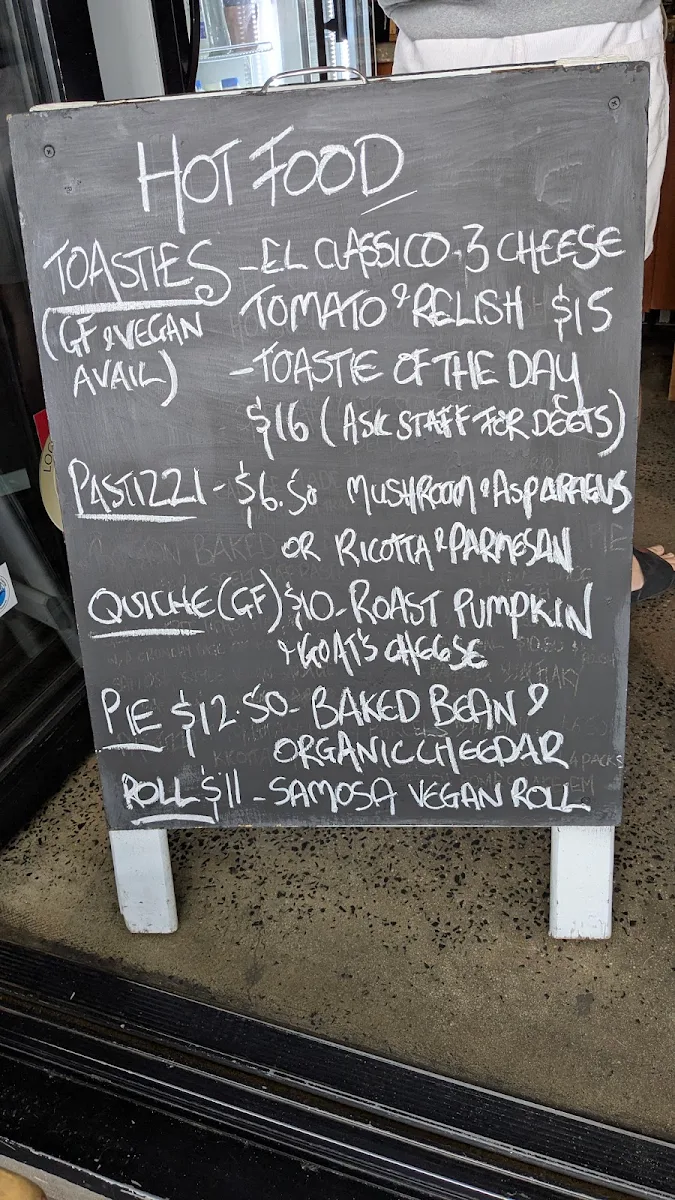 HOT FOOD
TOASTIES - EL CLASSICO - 3 CHEESE
(GF & VEGAN AVAIL) TOMATO & RELISH $15
- TOASTIE OF THE DAY
$16 (ASK STAFF FOR DEETS)
PASTIZZI - $6.50 MUSHROOM & ASPARAGUS
OR RICOTTA & PARMESAN
QUICHE (GF) $10 - ROAST PUMPKIN
& GOAT'S CHEESE
PIE $12.50 - BAKED BEAN &
ORGANIC CHEDDAR
ROLL $11 - SAMOSA VEGAN ROLL